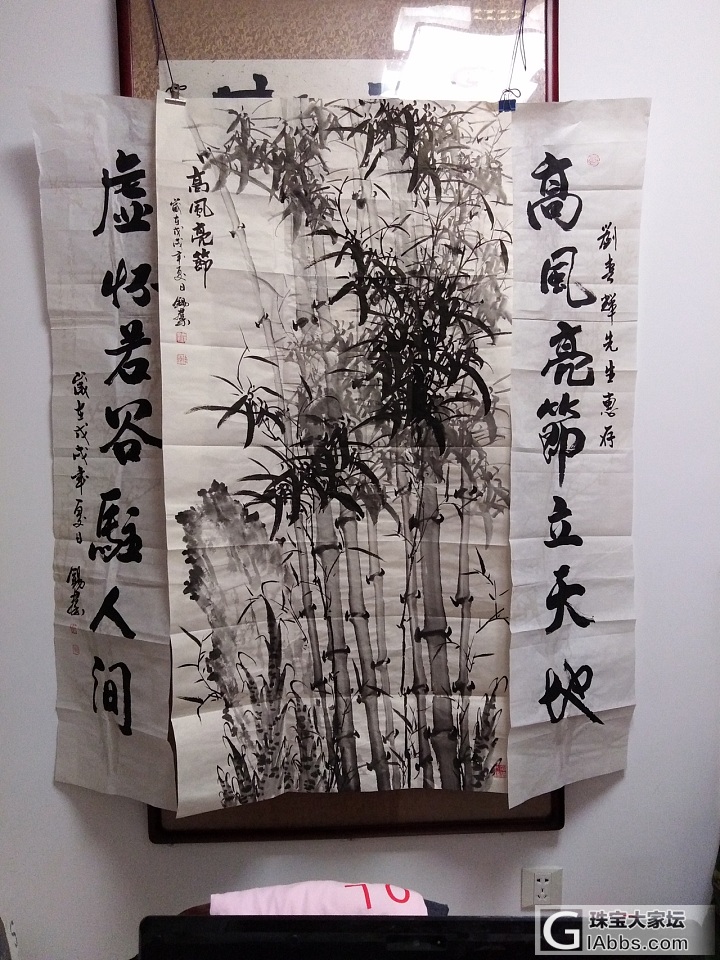 劉春輝先生惠存
高風亮節立天地
高風亮節
歲在戊戌年夏日
虛怀若谷駐人间
歲在戊戌年夏日
珠宝大家坛
GIAbbs.com